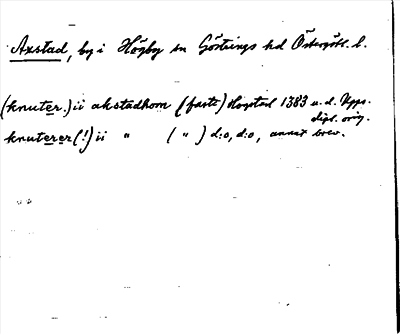 Axstad, by i Högby sn Göstrings hd Östergötl. l.
(knuter.) ii akstadhom (faste) Hogstad 1383 u.d. Upps. dipl. orig.
knuterer (!) ii " ( " ) d:o, d:o, annat brev.